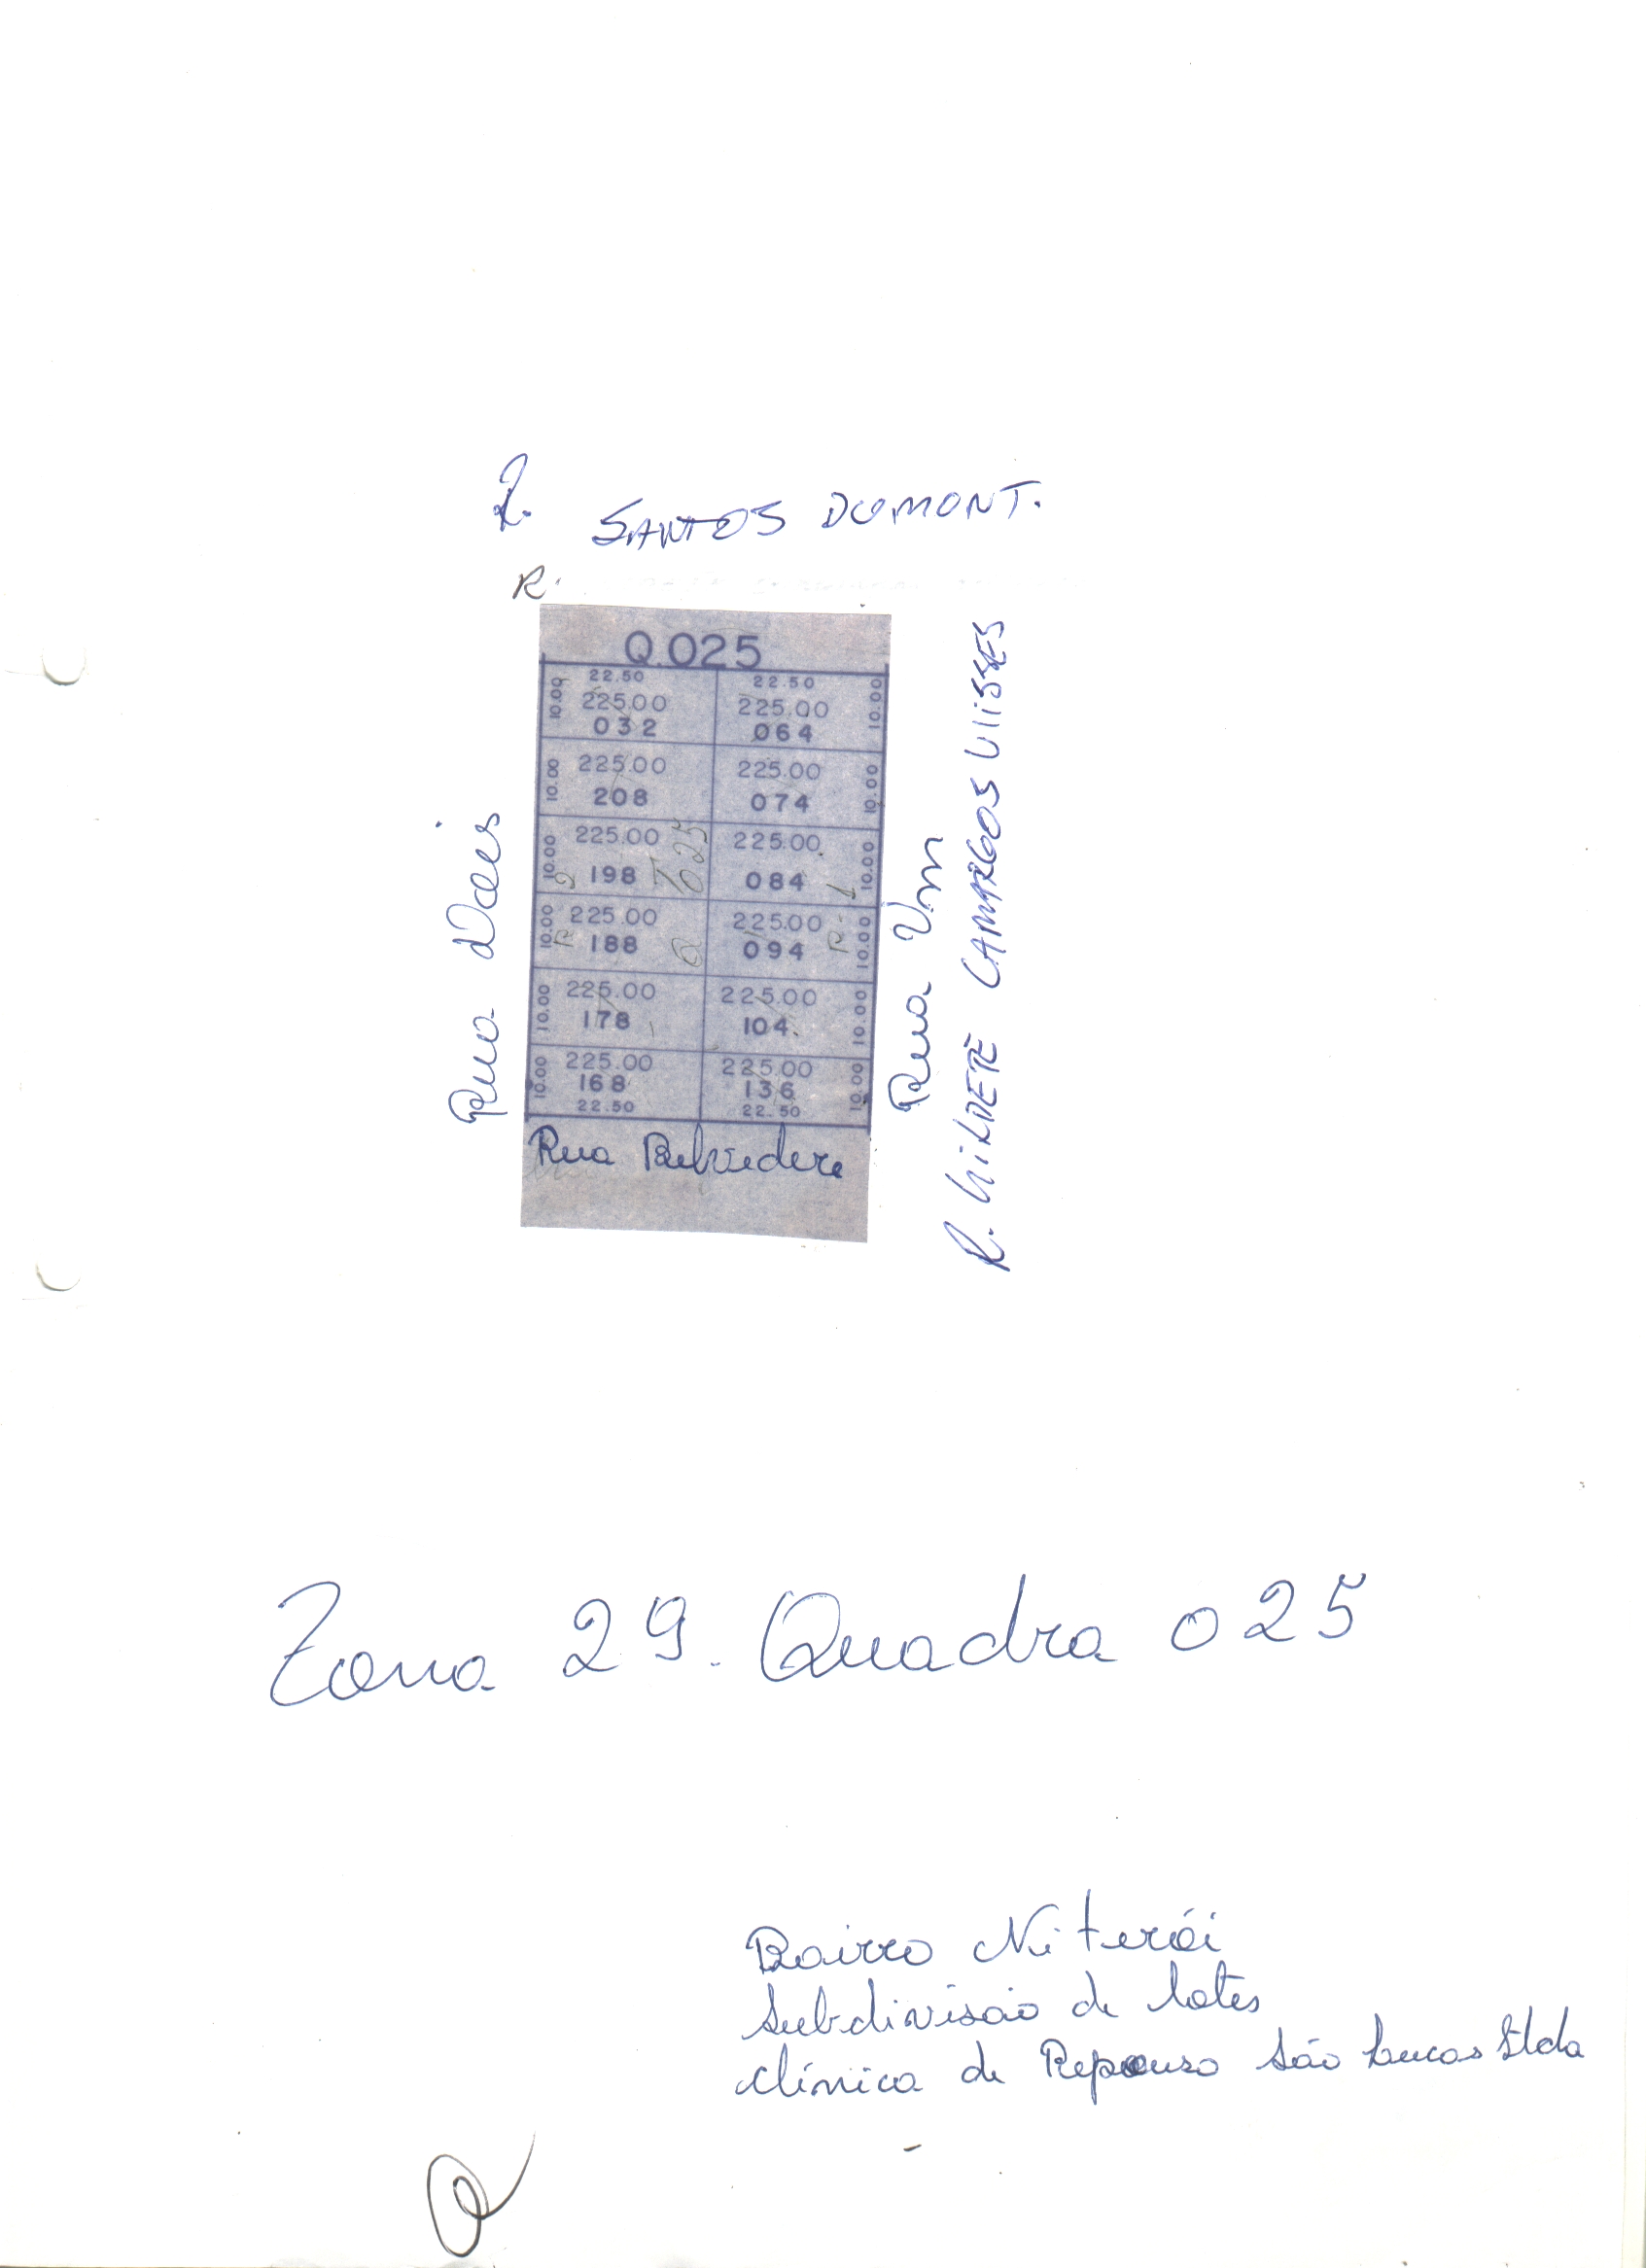 R. SANTOS DUMONT.
R.
Q.025
22.50 22.50
10.00 225.00 225.00 10.00
032 064
10.00 225.00 225.00 10.00
208 074
10.00 225.00 225.00 10.00
198 084
10.00 225.00 225.00 10.00
188 094
10.00 225.00 225.00 10.00
178 104
10.00 225.00 225.00 10.00
168 136
22.50 22.50
Rua Belvedere
Rua Dois
Rua Um
R. HILDETE CAMARGOS ULISSES
R 2
Q 025
R-1
Zona 29. Quadra 025
Bairro Niterói
Subdivisão de lotes
Clínica de Repouso São Lucas Ltda